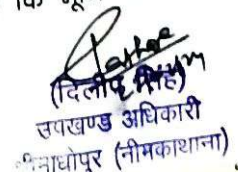 कि
(दिलीप सिंह)
उपखण्ड अधिकारी
माधोपुर (नीमकाथाना)